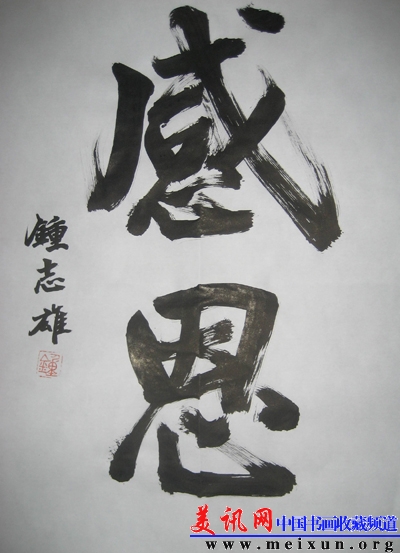 感恩
鍾志雄
美讯网 中国书画收藏频道
www.meixun.org